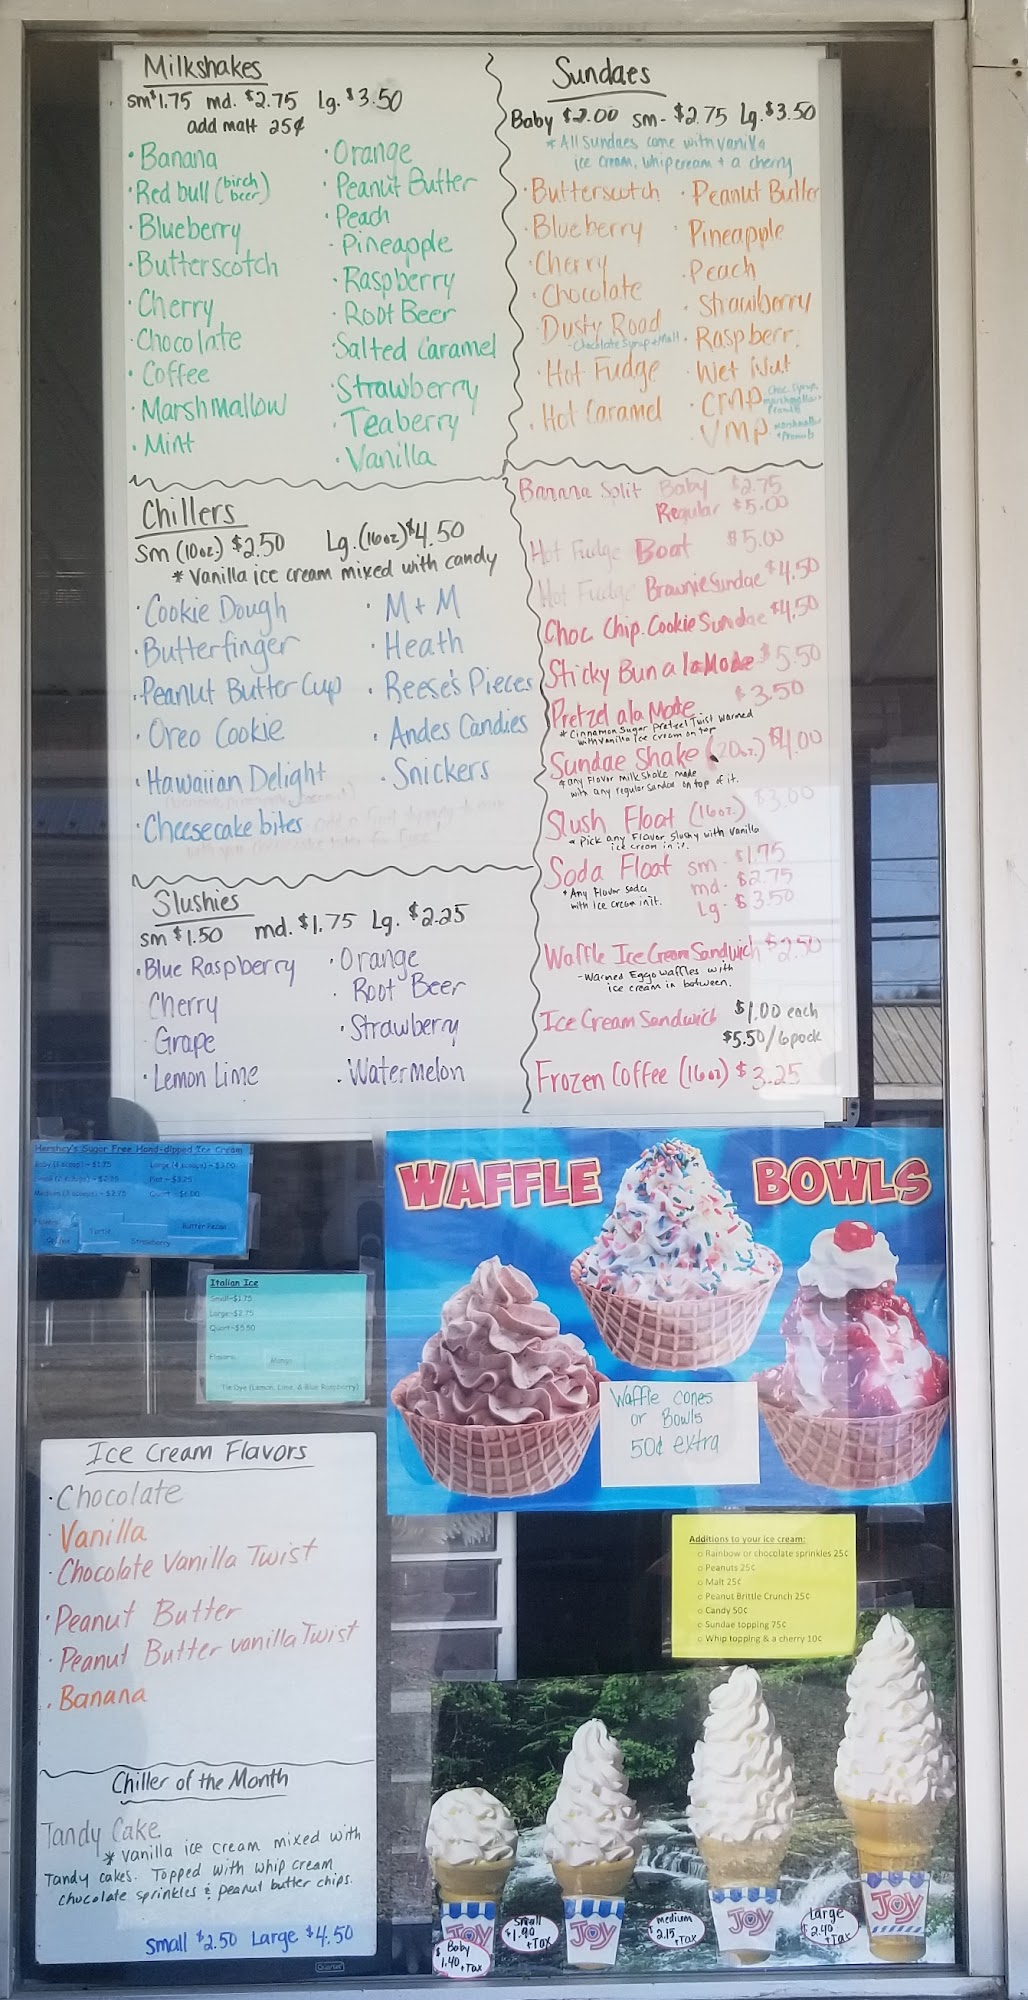 Milkshakes
sm $1.75 md. $2.75 lg. $3.50
add malt 25¢
· Banana
· Red bull (birch beer)
· Blueberry
· Butterscotch
· Cherry
· Chocolate
· Coffee
· Marshmallow
· Mint
· Orange
· Peanut Butter
· Peach
· Pineapple
· Raspberry
· Root Beer
· Salted Caramel
· Strawberry
· Teaberry
· Vanilla
Sundaes
Baby $2.00 sm- $2.75 Lg. $3.50
* All Sundaes come with vanilla
ice cream, whip cream + a cherry
· Butterscotch
· Blueberry
· Cherry
· Chocolate
Dusty Road
- Chocolate Syrup + Malt
· Hot Fudge
· Hot Caramel
· Peanut Butter
· Pineapple
· Peach
· Strawberry
· Raspberr
· Wet Nut
· CMP Choc Syrup,
marshmallow +
Peanuts
· VMP Marshmallow
+ Peanuts
Chillers
Sm (10oz.) $2.50 Lg. (16oz) $4.50
* Vanilla ice cream mixed with candy
· Cookie Dough
· Butterfinger
· Peanut Butter Cup
· Oreo Cookie
· Hawaiian Delight
· Cheesecake bites
· M + M
· Heath
· Reese's Pieces
· Andes Candies
· Snickers
Slushies
sm $1.50 md. $1.75 Lg. $2.25
· Blue Raspberry
Cherry
· Grape
· Lemon Lime
· Orange
· Root Beer
· Strawberry
· Watermelon
Banana Split Baby $2.75
Regular $5.00
Hot Fudge Boat $5.00
Hot Fudge Brownie Sundae $4.50
Choc Chip Cookie Sundae $4.50
Sticky Bun a la Mode $5.50
Pretzel ala Mode $3.50
* Cinnamon Sugar Pretzel Twist Warmed
with vanilla ice cream on top
Sundae Shake (20oz.) $4.00
* any Flavor milkshake made
with any regular sundae on top of it.
Slush Float (16oz.) $3.00
* Pick any Flavor Slushy with vanilla
ice cream in it.
Soda Float sm - $1.75
md - $2.75
Lg - $3.50
* Any Flavor Soda
with ice cream in it.
Waffle Ice Cream Sandwich $2.50
- Warmed Eggo waffles with
ice cream in between.
Ice Cream Sandwich $1.00 each
$5.50/6pack
Frozen Coffee (16oz) $3.25
Hershey's Sugar Free Hand-dipped Ice Cream
Butter Pecan
Strawberry
Italian Ice
Small-$1.75
Large-$2.75
Quart-$5.50
Flavors:
Mango
Tie Dye (Lemon, Lime, & Blue Raspberry)
WAFFLE BOWLS
Waffle cones
or Bowls
50¢ extra
Ice Cream Flavors
· Chocolate
· Vanilla
· Chocolate Vanilla Twist
· Peanut Butter
· Peanut Butter vanilla Twist
· Banana
Chiller of the Month
Tandy Cake
* vanilla ice cream mixed with
Tandy cakes. Topped with whip cream
chocolate sprinkles & peanut butter chips.
Small $2.50 Large $4.50
Quartet
Additions to your ice cream:
o Rainbow or chocolate sprinkles 25¢
o Peanuts 25¢
o Malt 25¢
o Peanut Brittle Crunch 25¢
o Candy 50¢
o Sundae topping 75¢
o Whip topping & a cherry 10¢
JOY
JOY
JOY
JOY
Baby
$1.40 +Tax
Small
$1.90
+Tax
medium
$2.15 +Tax
Large
$2.40
+Tax